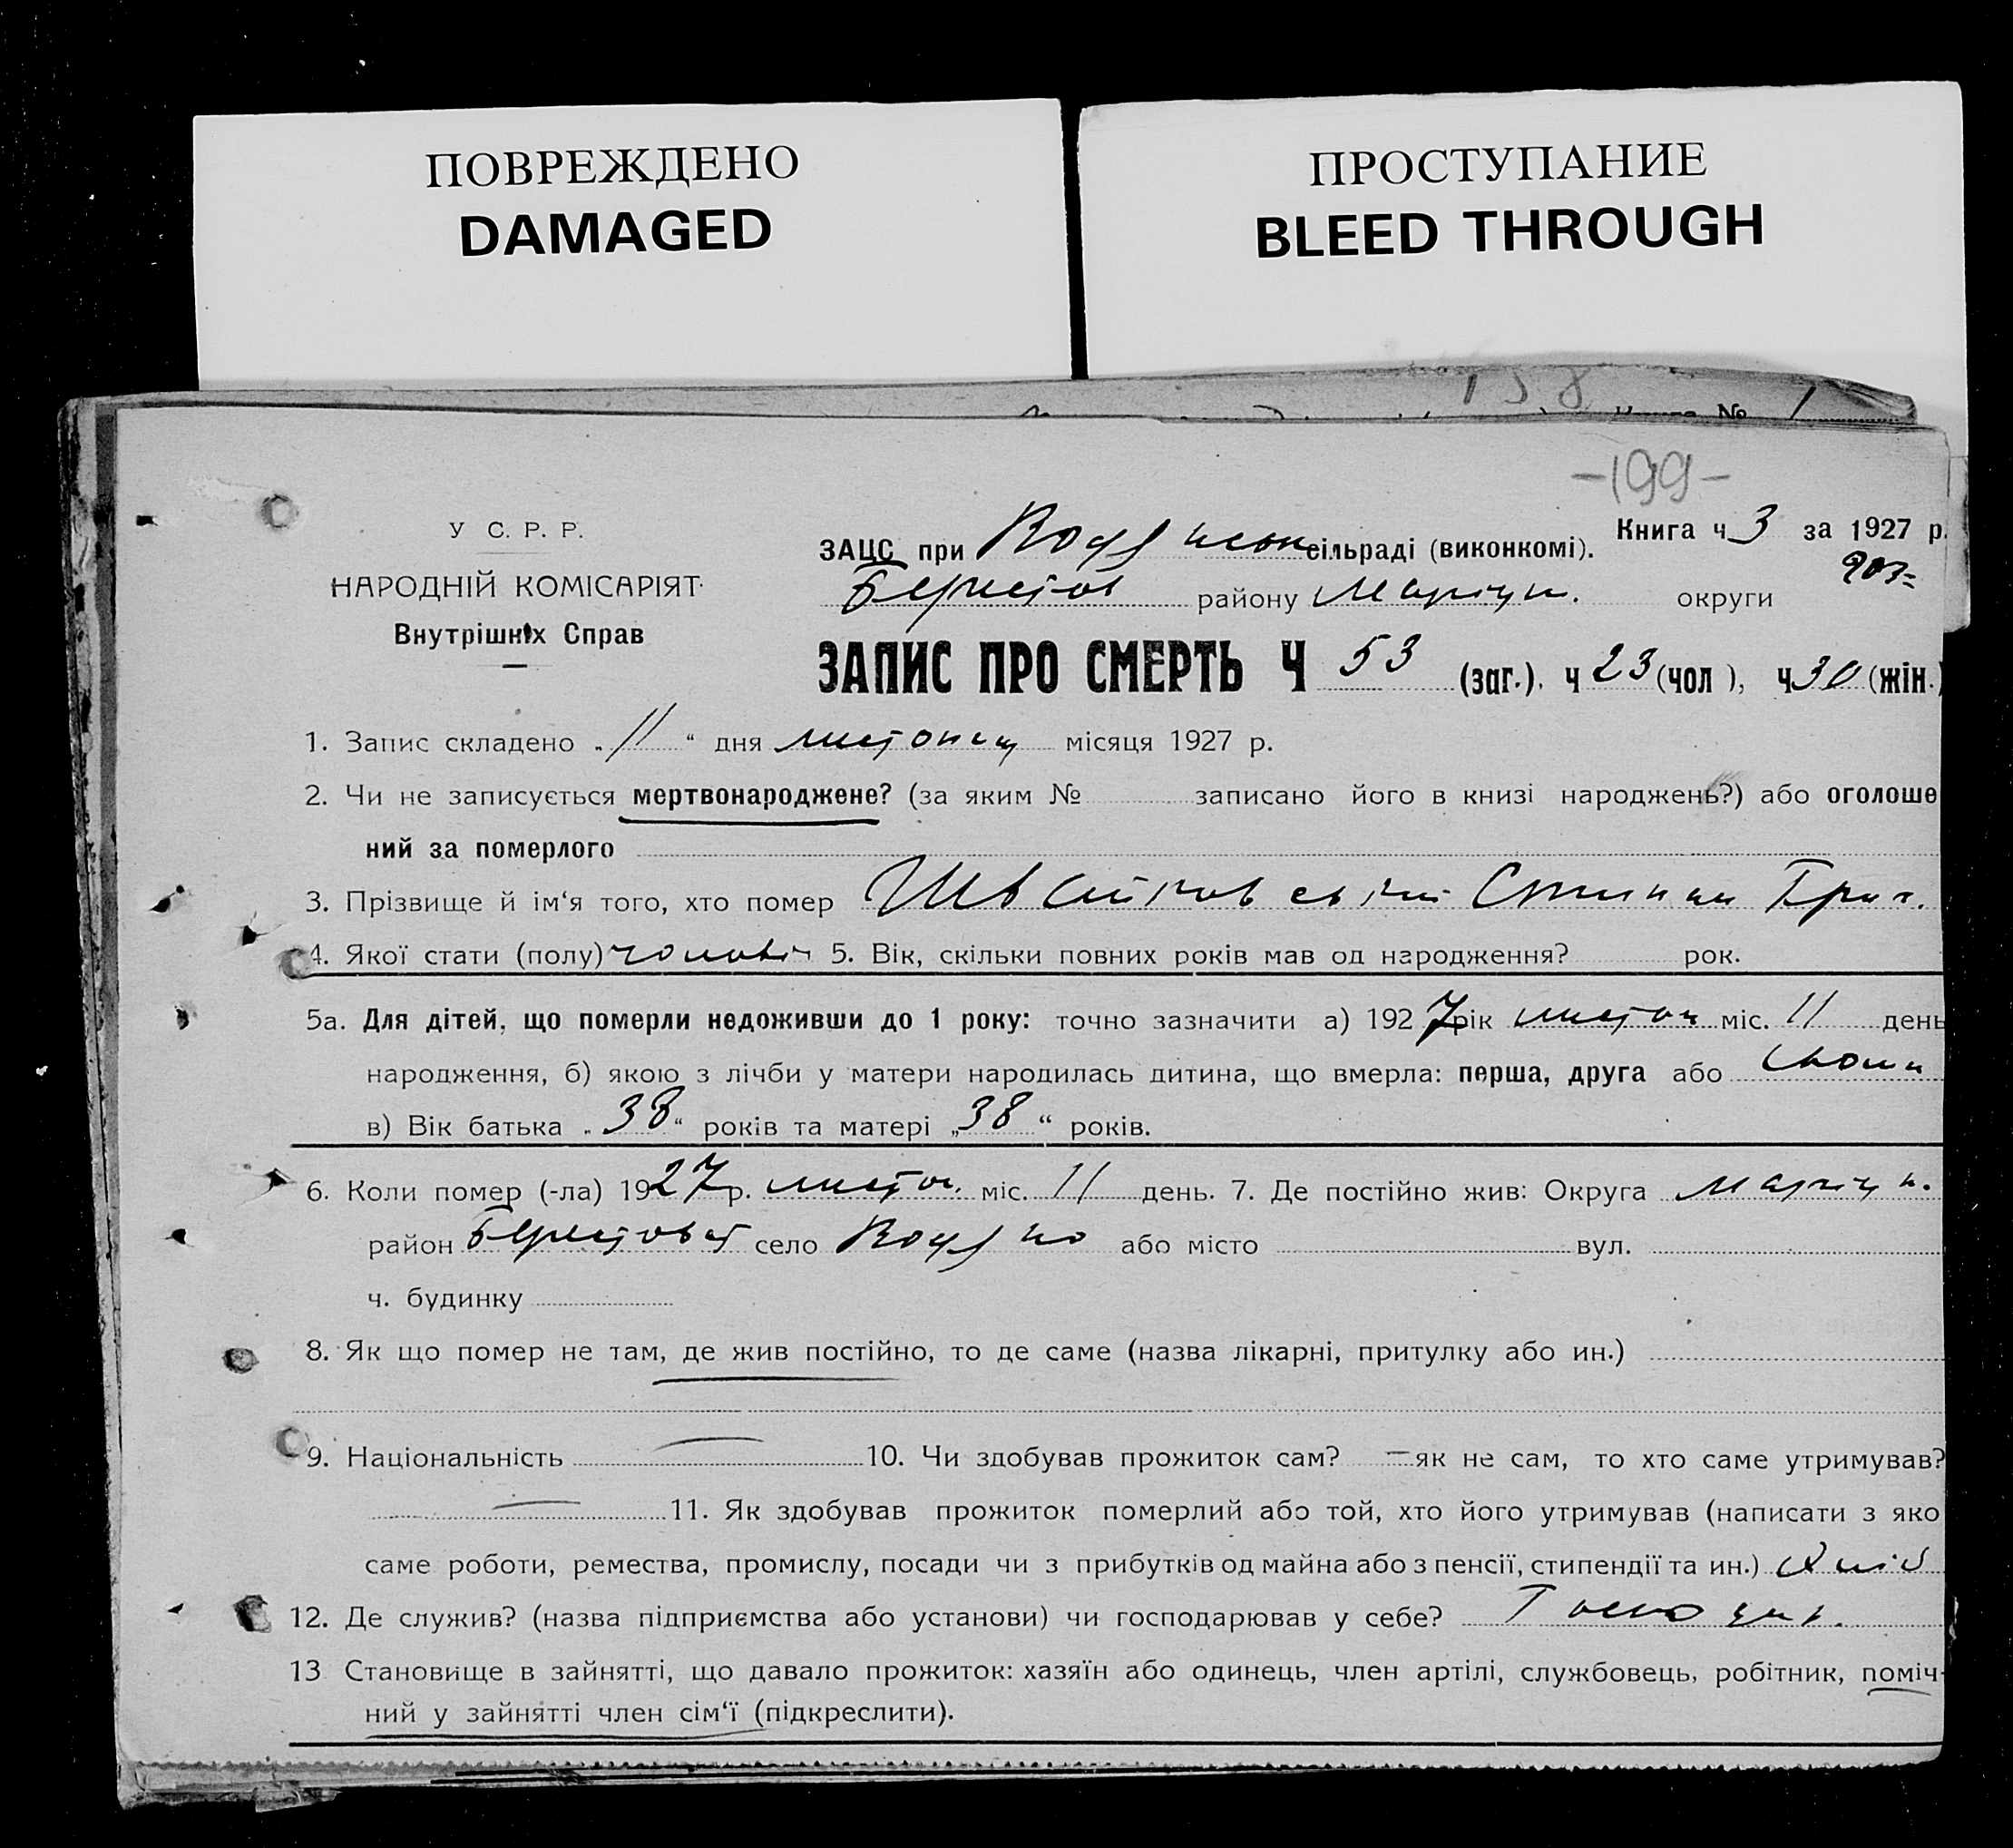 ПОВРЕЖДЕНО
DAMAGED
ПРОСТУПАНИЕ
BLEED THROUGH
158
№ 1
-199-
У С. Р. Р.
НАРОДНІЙ КОМІСАРІЯТ
Внутрішніх Справ
Книга ч 3 за 1927 р.
ЗАЦС при сільраді (виконкомі).
Берестов району Маріуп. округи
ЗАПИС ПРО СМЕРТЬ Ч 53 (заг.). ч 23 (чол ), ч 30 (жін.)
1. Запис складено „ 11 “ дня листопад місяця 1927 р.
2. Чи не записується мертвонароджене? (за яким № записано його в книзі народжень?) або оголоше
ний за померлого
3. Прізвище й ім‘я того, хто помер Швайковський Степан Григ.
4. Якої стати (полу) чоловіч 5. Вік, скільки повних років мав од народження? рок.
5а. Для дітей, що померли недоживши до 1 року: точно зазначити а) 1927 рік листоп міс. 11 день
народження, б) якою з лічби у матери народилась дитина, що вмерла: перша, друга або
в) Вік батька „ 38 “ років та матері „ 38 “ років.
6. Коли помер (-ла) 1927 р. листоп. міс. 11 день. 7. Де постійно жив: Округа Маріуп.
район Берестовеч село або місто вул.
ч. будинку
8. Як що помер не там, де жив постійно, то де саме (назва лікарні, притулку або ин.)
9. Національність — 10. Чи здобував прожиток сам? — як не сам, то хто саме утримував?
— 11. Як здобував прожиток померлий або той, хто його утримував (написати з яко
саме роботи, ремества, промислу, посади чи з прибутків од майна або з пенсії, стипендії та ин.) Хліб
12. Де служив? (назва підприємства або установи) чи господарював у себе? Господар.
13 Становище в зайнятті, що давало прожиток: хазяїн або одинець, член артілі, службовець, робітник, поміч-
ний у зайнятті член сім‘ї (підкреслити).